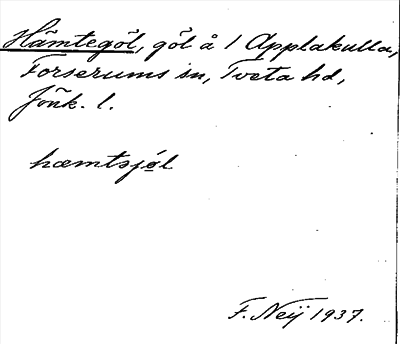 Hämtegöl, göl å 1 Applakulla,
Forserums sn, Tveta hd,
Jönk. l.
hæmtsjøl
F. Neij 1937.